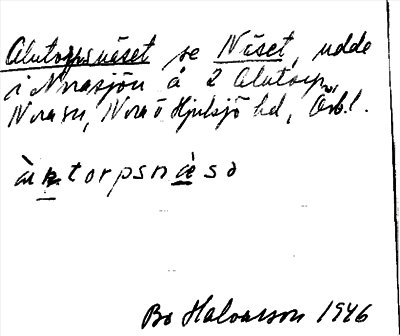 Alntorpsnäset se Näset, udde
i Norasjön å 2 Alntorp,
Nora sn, Nora o Hjulsjö hd, Örb.l.
à n t o r p s n æ̀ s ə
Bo Halvarsson 1946